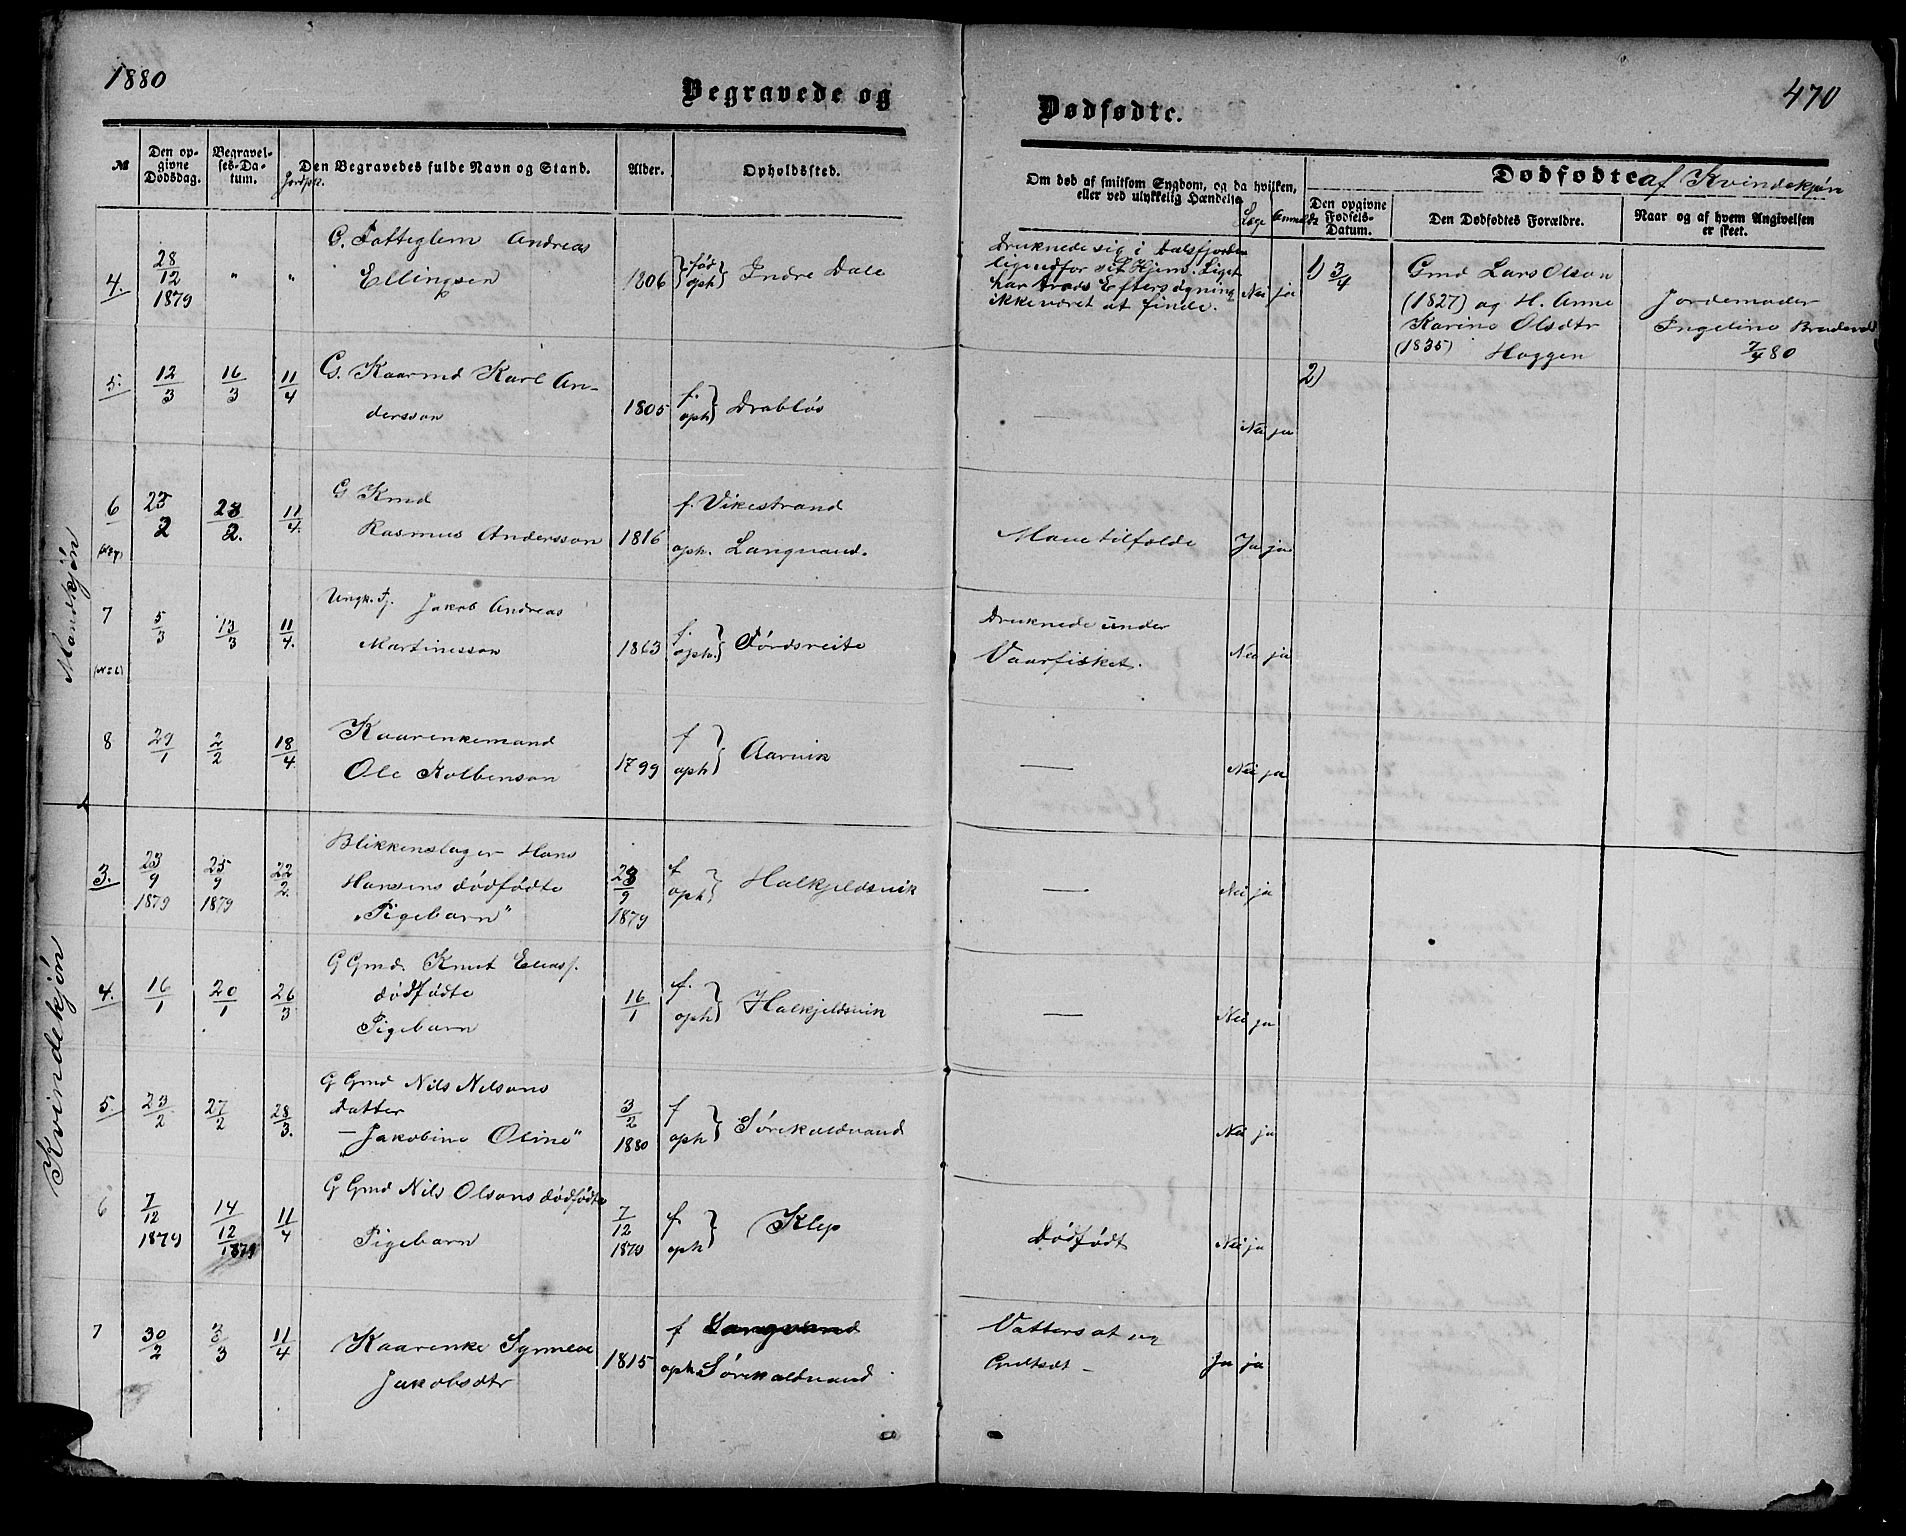 1880
Begravede og
Dødfødte.
470
№
Den op-
givne
Dødsdag.
Begravel-
ses-Da-
tum.
Jordpk.
Den Begravedes fulde Navn og Stand.
Alder.
Opholdssted.
Om død af smitsom Sygdom, og da hvilken,
eller ved ulykkelig Hændelse
Læge
Anmeldt
Dødfødte af Kvindekjøn
Den opgivne
Fødsels-
Datum.
Den Dødfødtes Forældre.
Naar og af hvem Angivelsen
er skeet.
Mandkjøn
4. 28/12 1879 " " G. Fatteglem Andreas
Ellingsen 1806 fød oph Indre Dale
Druknede sig i Dalsfjorden
ligeudfor sit Hjem. Liget
har trods Eftersøgning
ikke været at finde. Nei ja
1) 3/4 Gmd Lars Olson
(1827) og H. Anne
Karine Olsdtr
(1835) Haggen
Jordemoder
Ingeline
7/4 80
5. 12/3 16/3 11/4 G. Kaarmd Karl An-
dersson 1805 f. oph Drabløs — Nei ja
2)
6 25/2 28/2. 11/4. G Kmd
Rasmus Andersson 1816 f. Vikestrand
oph. Langvand. Mavetilfælde Ja ja
7 5/3 13/3 11/4. Ungk. Fj. Jakob Andreas
Martinesson 1863 f. oph Førdsreite
Druknede under
Vaarfisket. Nei ja
8 29/1 2/2 18/4 Kaarenkemand
Ole Kolbenson 1799 f oph Aarvik — Nei ja
Kvindekjøn
3. 23/9 1879 25/9 1879 22/2. Blikkenslager Hans
Hansens dødfødte
"Pigebarn" 23/9 1879 f oph Halkjeldsvik — Nei ja
4. 16/1 20/1 26/3 G Gmd. Knut Eliass.
dødfødte
Pigebarn 16/1 f. oph Halkjeldsvik — Nei ja
5. 23/2 27/2 28/3. G Gmd Nils Nilsons
datter
"Jakobine Oline" 3/2 1880 f oph Sørekaldvand Nei ja
6 7/12 1879 14/12 1879 11/4 G Gmd Nils Olsons dødfødte
Pigebarn 7/12 1879 f. oph Klep Dødfødt Nei ja
7 30/2 3/3 11/4 Kaarenke Synneve
Jakobsdtr 1815 f Langvand
oph Sørekaldvand
Vattersot og
Ja ja